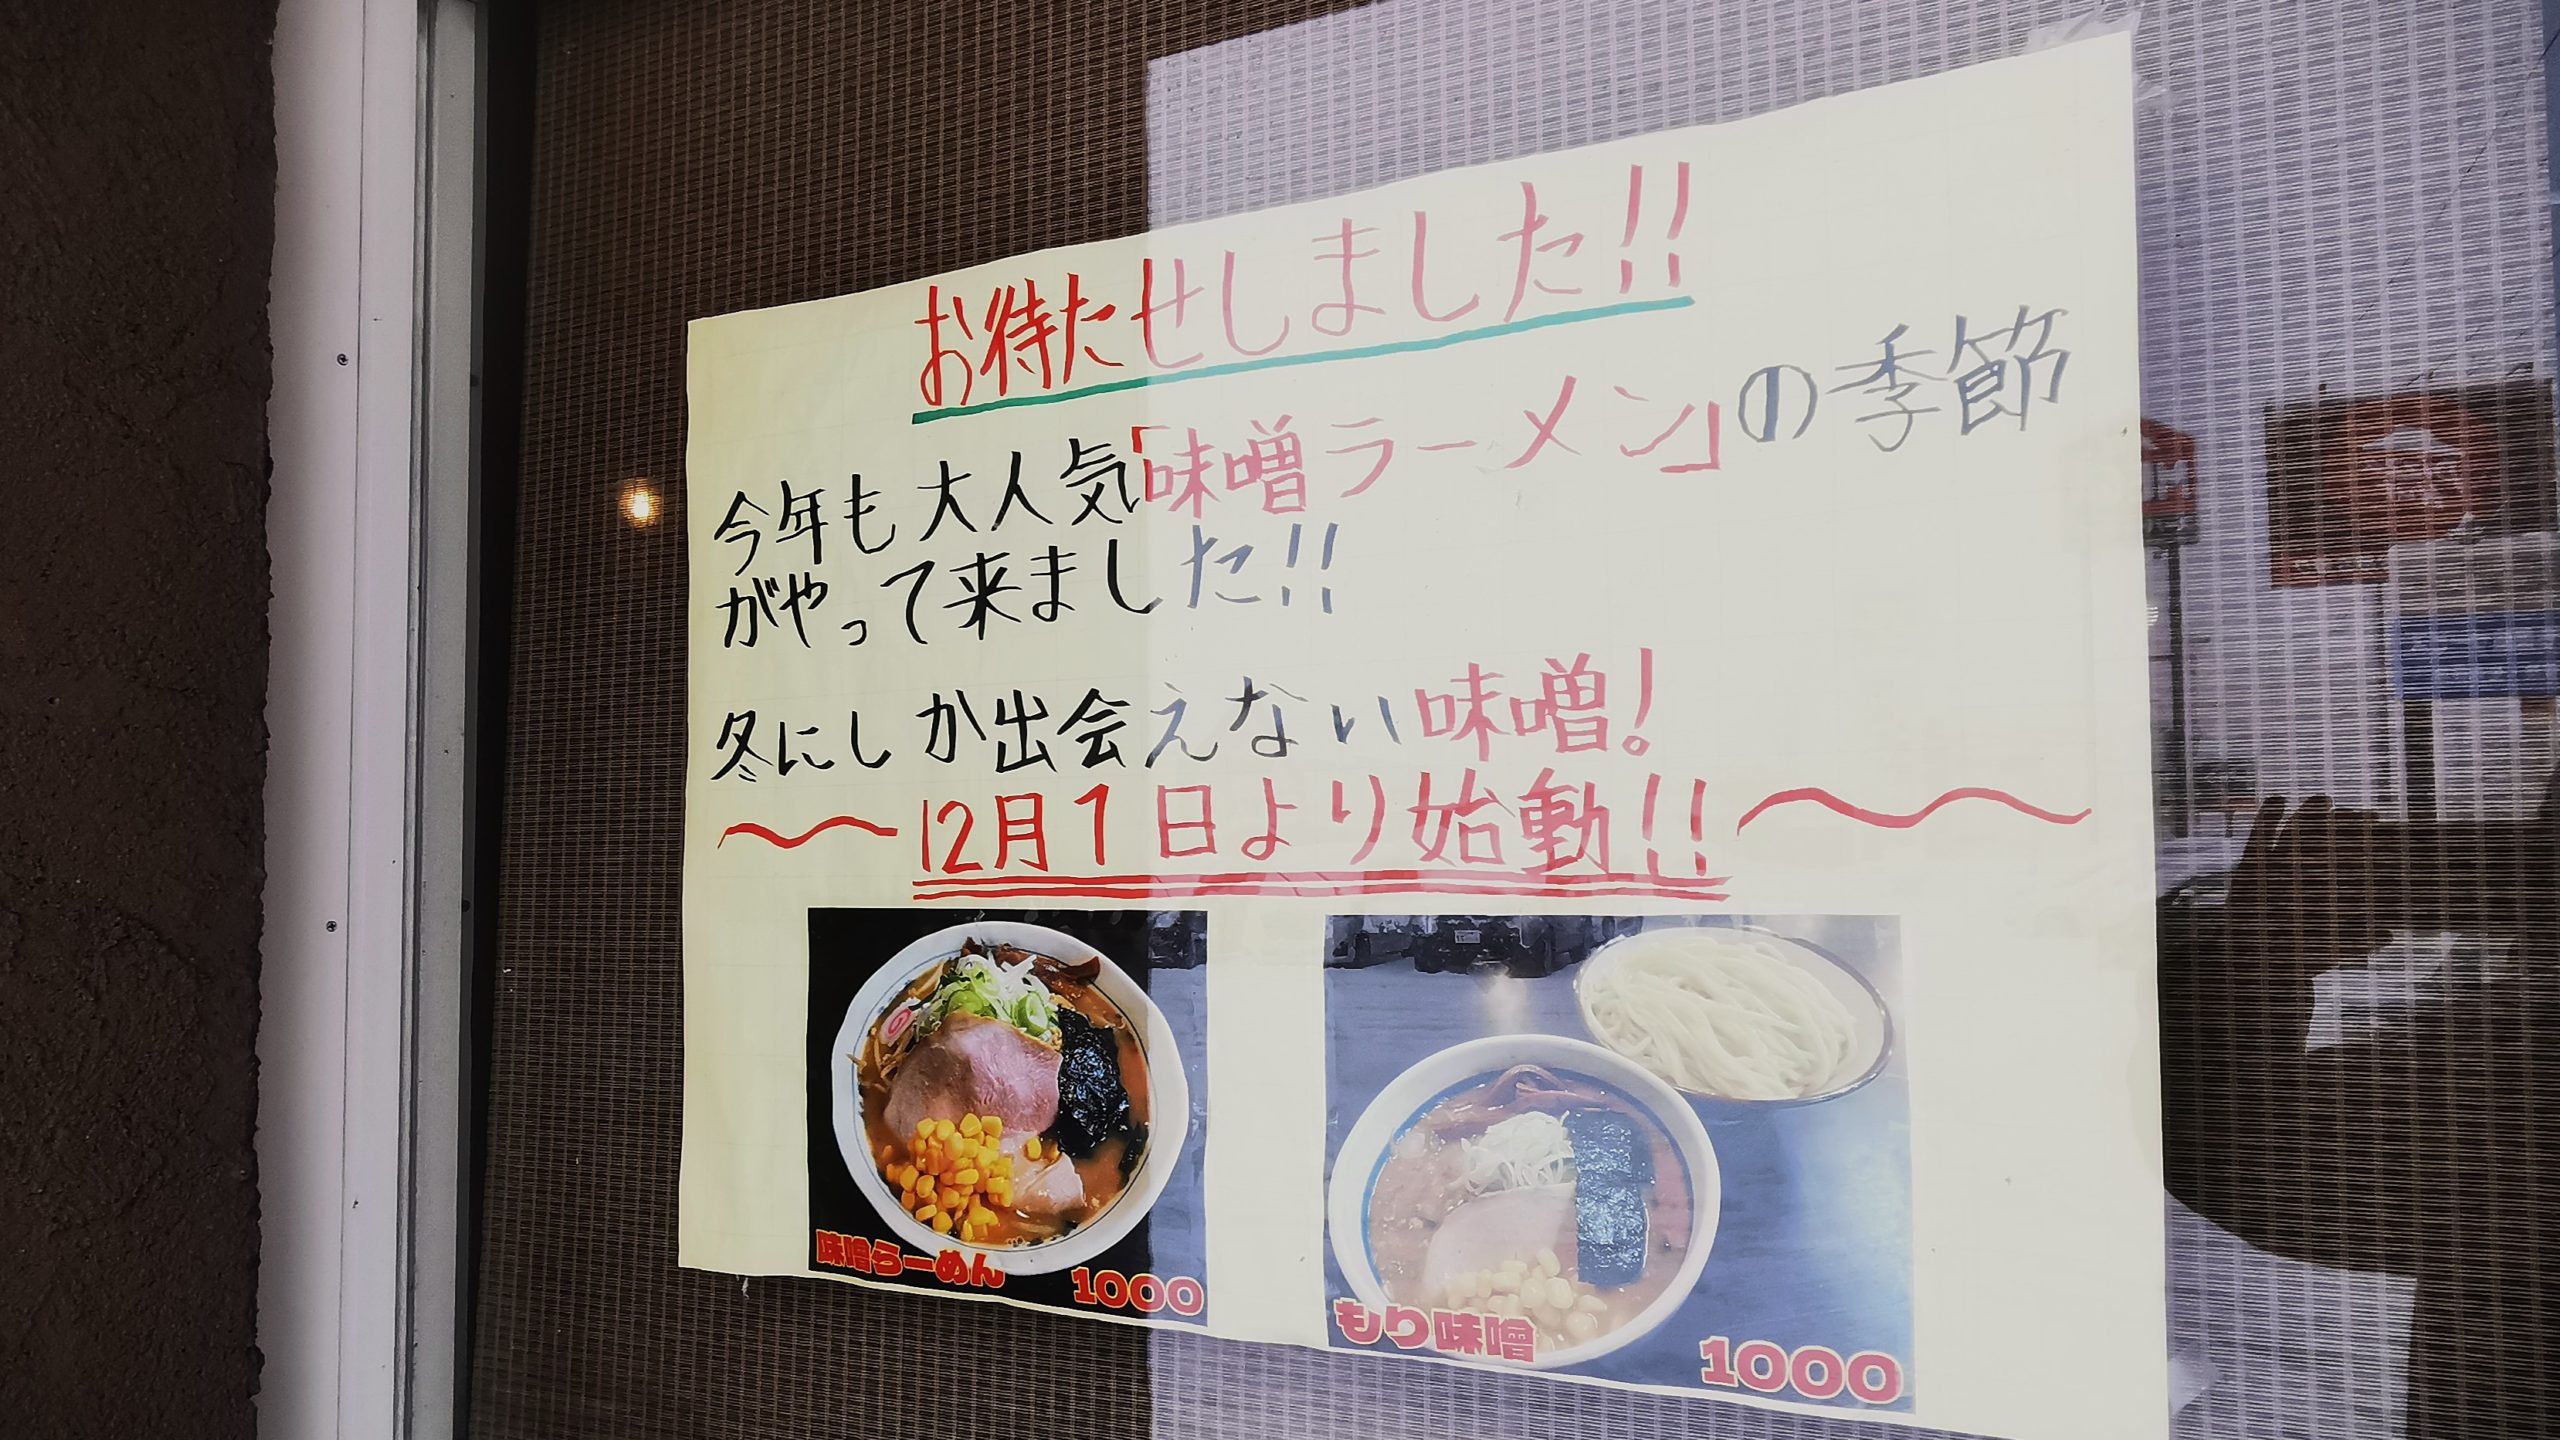 お待たせしました!!
今年も大人気「味噌ラーメン」の季節
がやって来ました!!
冬にしか出会えない味噌!
〜12月1日より始動!!〜
味噌らーめん 1000
もり味噌 1000